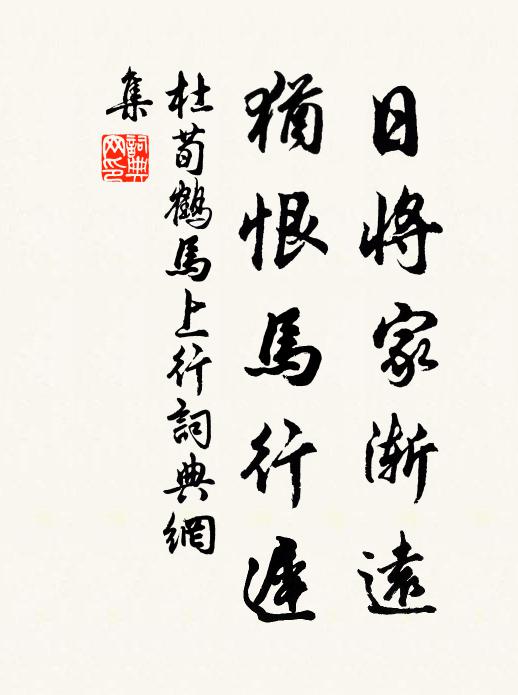 日將家漸遠
猶恨馬行遲
杜荀鶴馬上行詞典網
集
詞典
网印